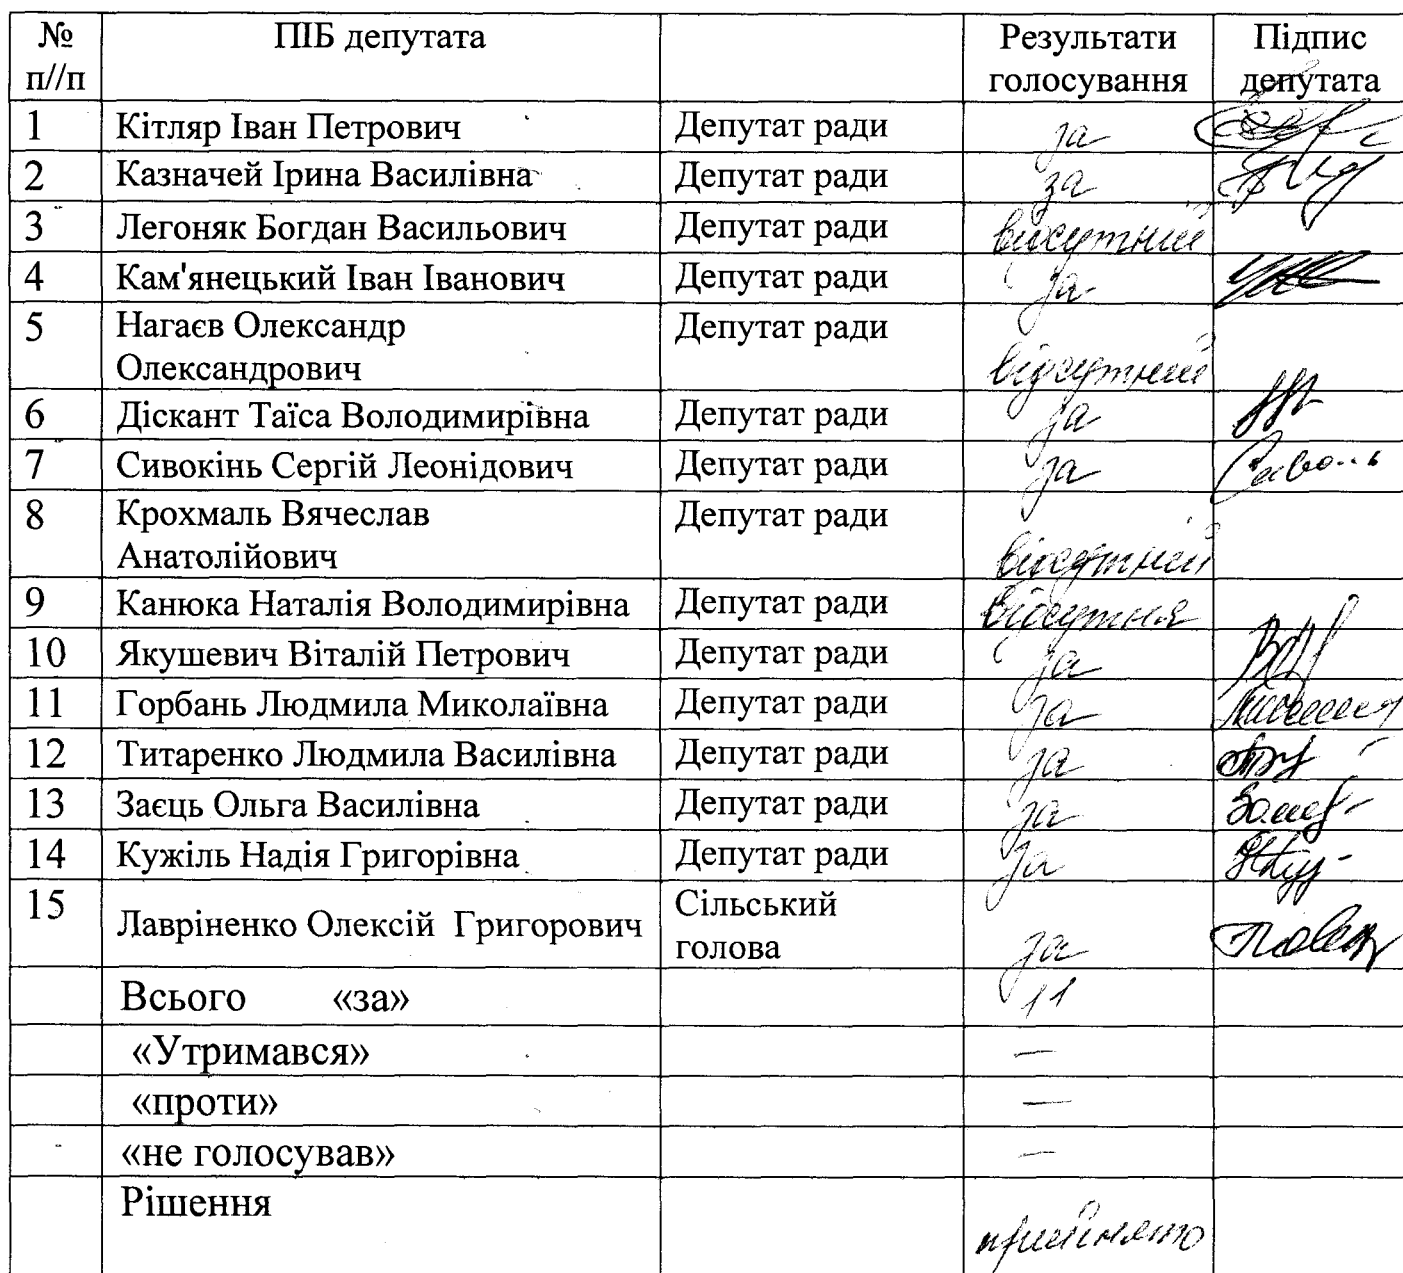 № п//п ПІБ депутата Результати голосування Підпис депутата
1 Кітляр Іван Петрович Депутат ради за
2 Казначей Ірина Василівна Депутат ради за
3 Легоняк Богдан Васильович Депутат ради відсутній
4 Кам'янецький Іван Іванович Депутат ради за
5 Нагаєв Олександр Олександрович Депутат ради відсутній
6 Діскант Таїса Володимирівна Депутат ради за
7 Сивокінь Сергій Леонідович Депутат ради за
8 Крохмаль Вячеслав Анатолійович Депутат ради відсутній
9 Канюка Наталія Володимирівна Депутат ради відсутня
10 Якушевич Віталій Петрович Депутат ради за
11 Горбань Людмила Миколаївна Депутат ради за
12 Титаренко Людмила Василівна Депутат ради за
13 Заєць Ольга Василівна Депутат ради за
14 Кужіль Надія Григорівна Депутат ради за
15 Лавріненко Олексій Григорович Сільський голова за
Всього «за» 11
«Утримався» —
«проти» —
«не голосував» —
Рішення прийнято